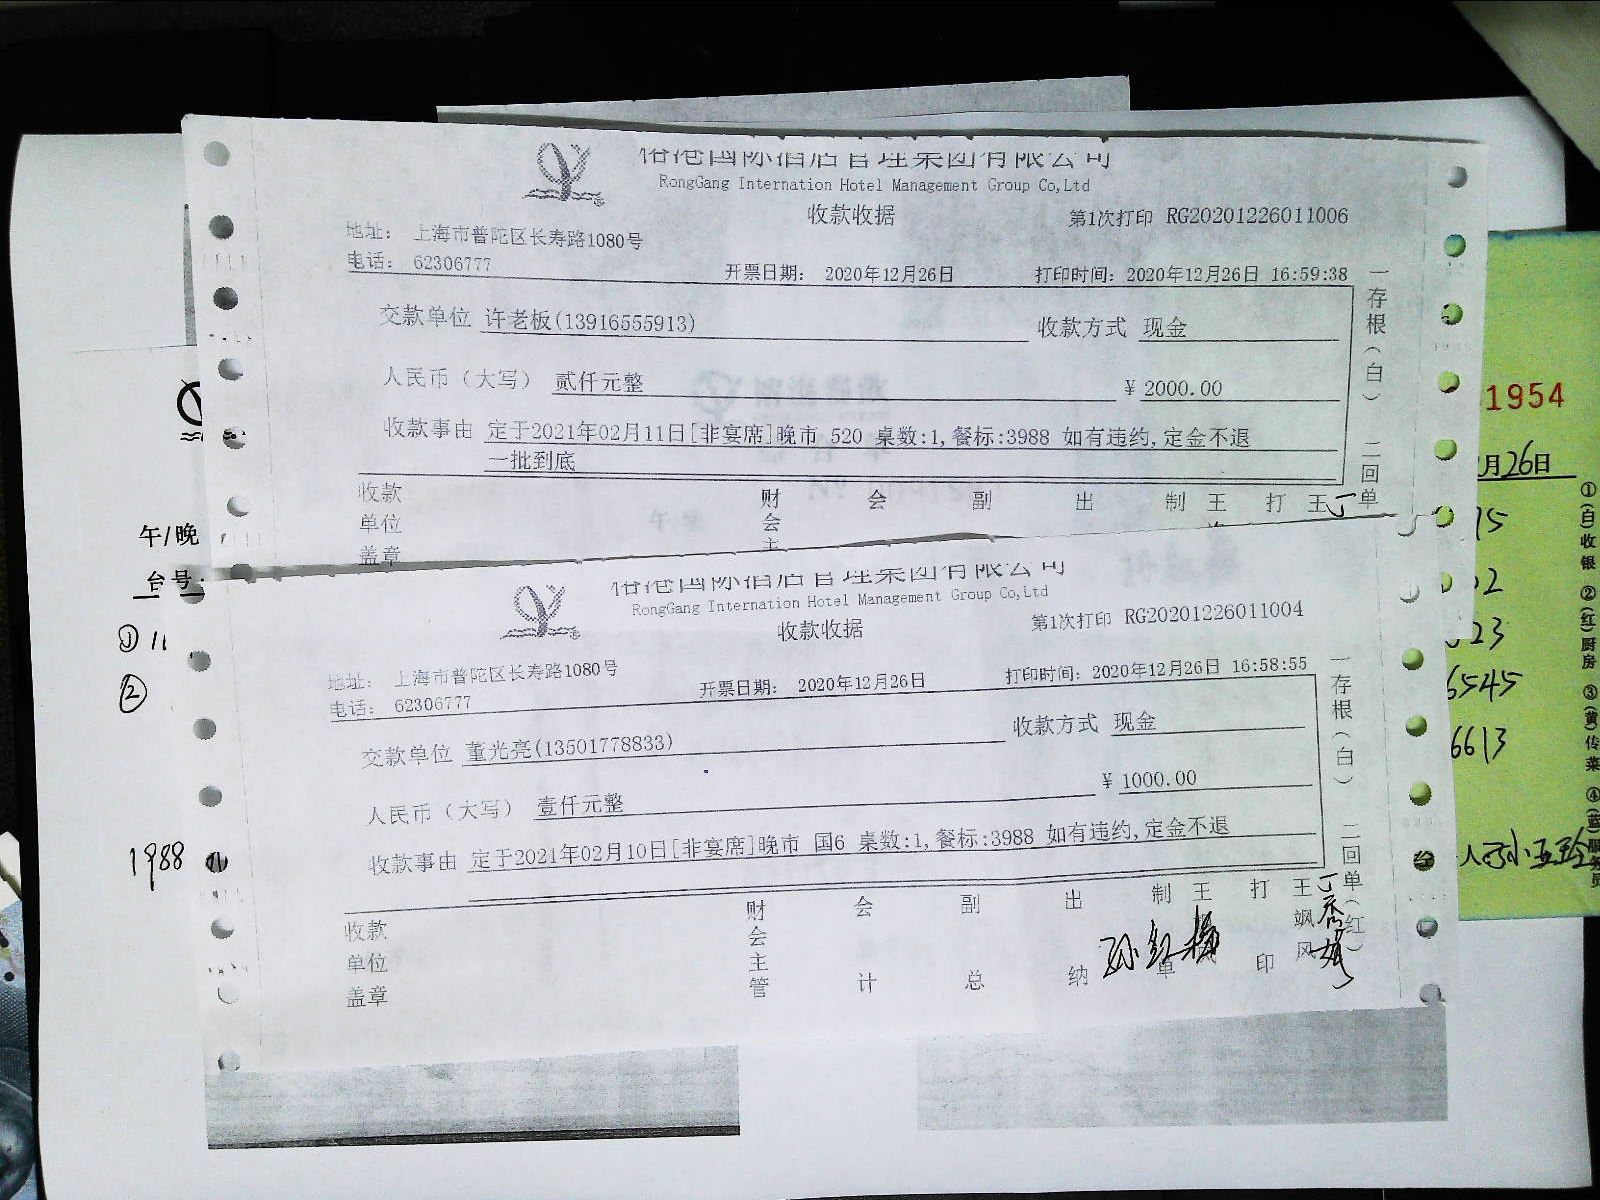 裕港国际酒店管理集团有限公司
RongGang Internation Hotel Management Group Co,Ltd
收款收据
第1次打印 RG20201226011006
地址： 上海市普陀区长寿路1080号
电话： 62306777
开票日期： 2020年12月26日
打印时间：2020年12月26日 16:59:38
交款单位 许老板(13916555913)
收款方式 现金
人民币（大写） 贰仟元整
¥ 2000.00
收款事由 定于2021年02月11日[非宴席]晚市 520 桌数:1,餐标:3988 如有违约,定金不退
一批到底
收款单位盖章
财会主 会 副 出 制 王 打 王
一存根（白） 二回单
裕港国际酒店管理集团有限公司
RongGang Internation Hotel Management Group Co,Ltd
收款收据
第1次打印 RG20201226011004
地址： 上海市普陀区长寿路1080号
电话： 62306777
开票日期： 2020年12月26日
打印时间：2020年12月26日 16:58:55
交款单位 董光亮(13501778833)
收款方式 现金
人民币（大写） 壹仟元整
¥ 1000.00
收款事由 定于2021年02月10日[非宴席]晚市 国6 桌数:1,餐标:3988 如有违约,定金不退
收款单位盖章
财会主管 会计 副总 出纳 制单 王 打印 王飒风
孙红梅
一存根（白） 二回单（红）
午/晚
台号
① 11
②
1988
1954
月26日
15
02
23
6545
6613
①(白)收银 ②(红)厨房 ③(黄)传菜 ④(蓝)服务员